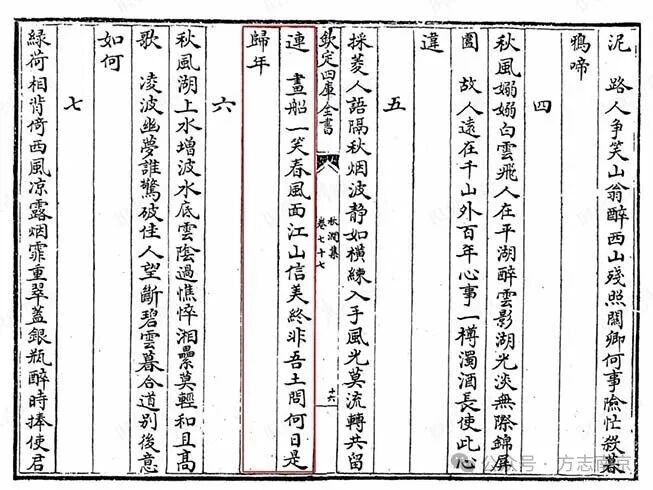 泥　路人争笑山翁醉西山殘照闗卿何事險忙殺暮
鴉啼
四
秋風嫋嫋白雲飛人在平湖醉雲影湖光淡無際錦屏
圍　故人遠在千山外百年心事一樽濁酒長使此心
違
五
採菱人語隔秋烟波静如横練入手風光莫流轉共留
欽定四庫全書
秋澗集
卷七十七
十六
連　畫船一笑春風面江山信美終非吾土問何日是
歸年
六
秋風湖上水增波水底雲陰過憔悴湘纍莫輕和且髙
歌　凌波幽夢誰驚破佳人望斷碧雲暮合道别後意
如何
七
緑荷相背倚西風凉露烟霏重翠蓋銀瓶醉時捧使君
公众号 · 方志南京